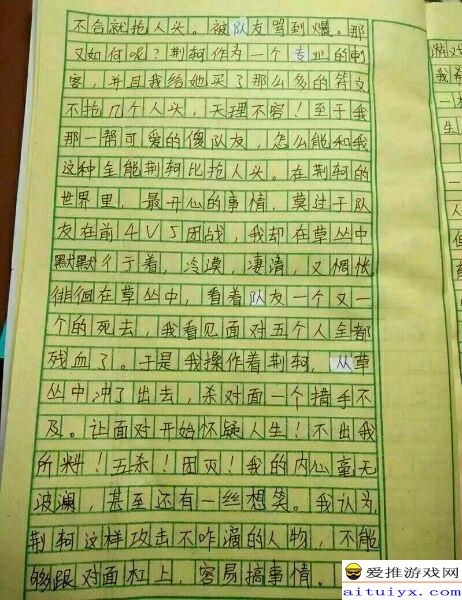 不合就抢人头。被队友骂到爆。那
又如何呢?荆轲作为一个专业的刺
客,并且我给她买了那么多的符文
不抢几个人头,天理不容!至于我
那一帮可爱的傻队友,怎么能和我
这种全能荆轲比抢人头。在荆轲的
世界里,最开心的事情,莫过于队
友在前4V5团战,我却在草丛中
默默彳亍着,冷漠,凄清,又惆怅
徘徊在草丛中,看着队友一个又一
个的死去,我看见面对五个人全都
残血了。于是我操作着荆轲,从草
丛中冲了出去,杀对面一个措手不
及。让面对开始怀疑人生!不出我
所料!五杀!团灭!我的内心毫无
波澜,甚至还有一丝想笑。我认为,
荆轲这样攻击不咋滴的人物,不能
够跟对面杠上,容易搞事情。
爱推游戏网
aituiyx.com